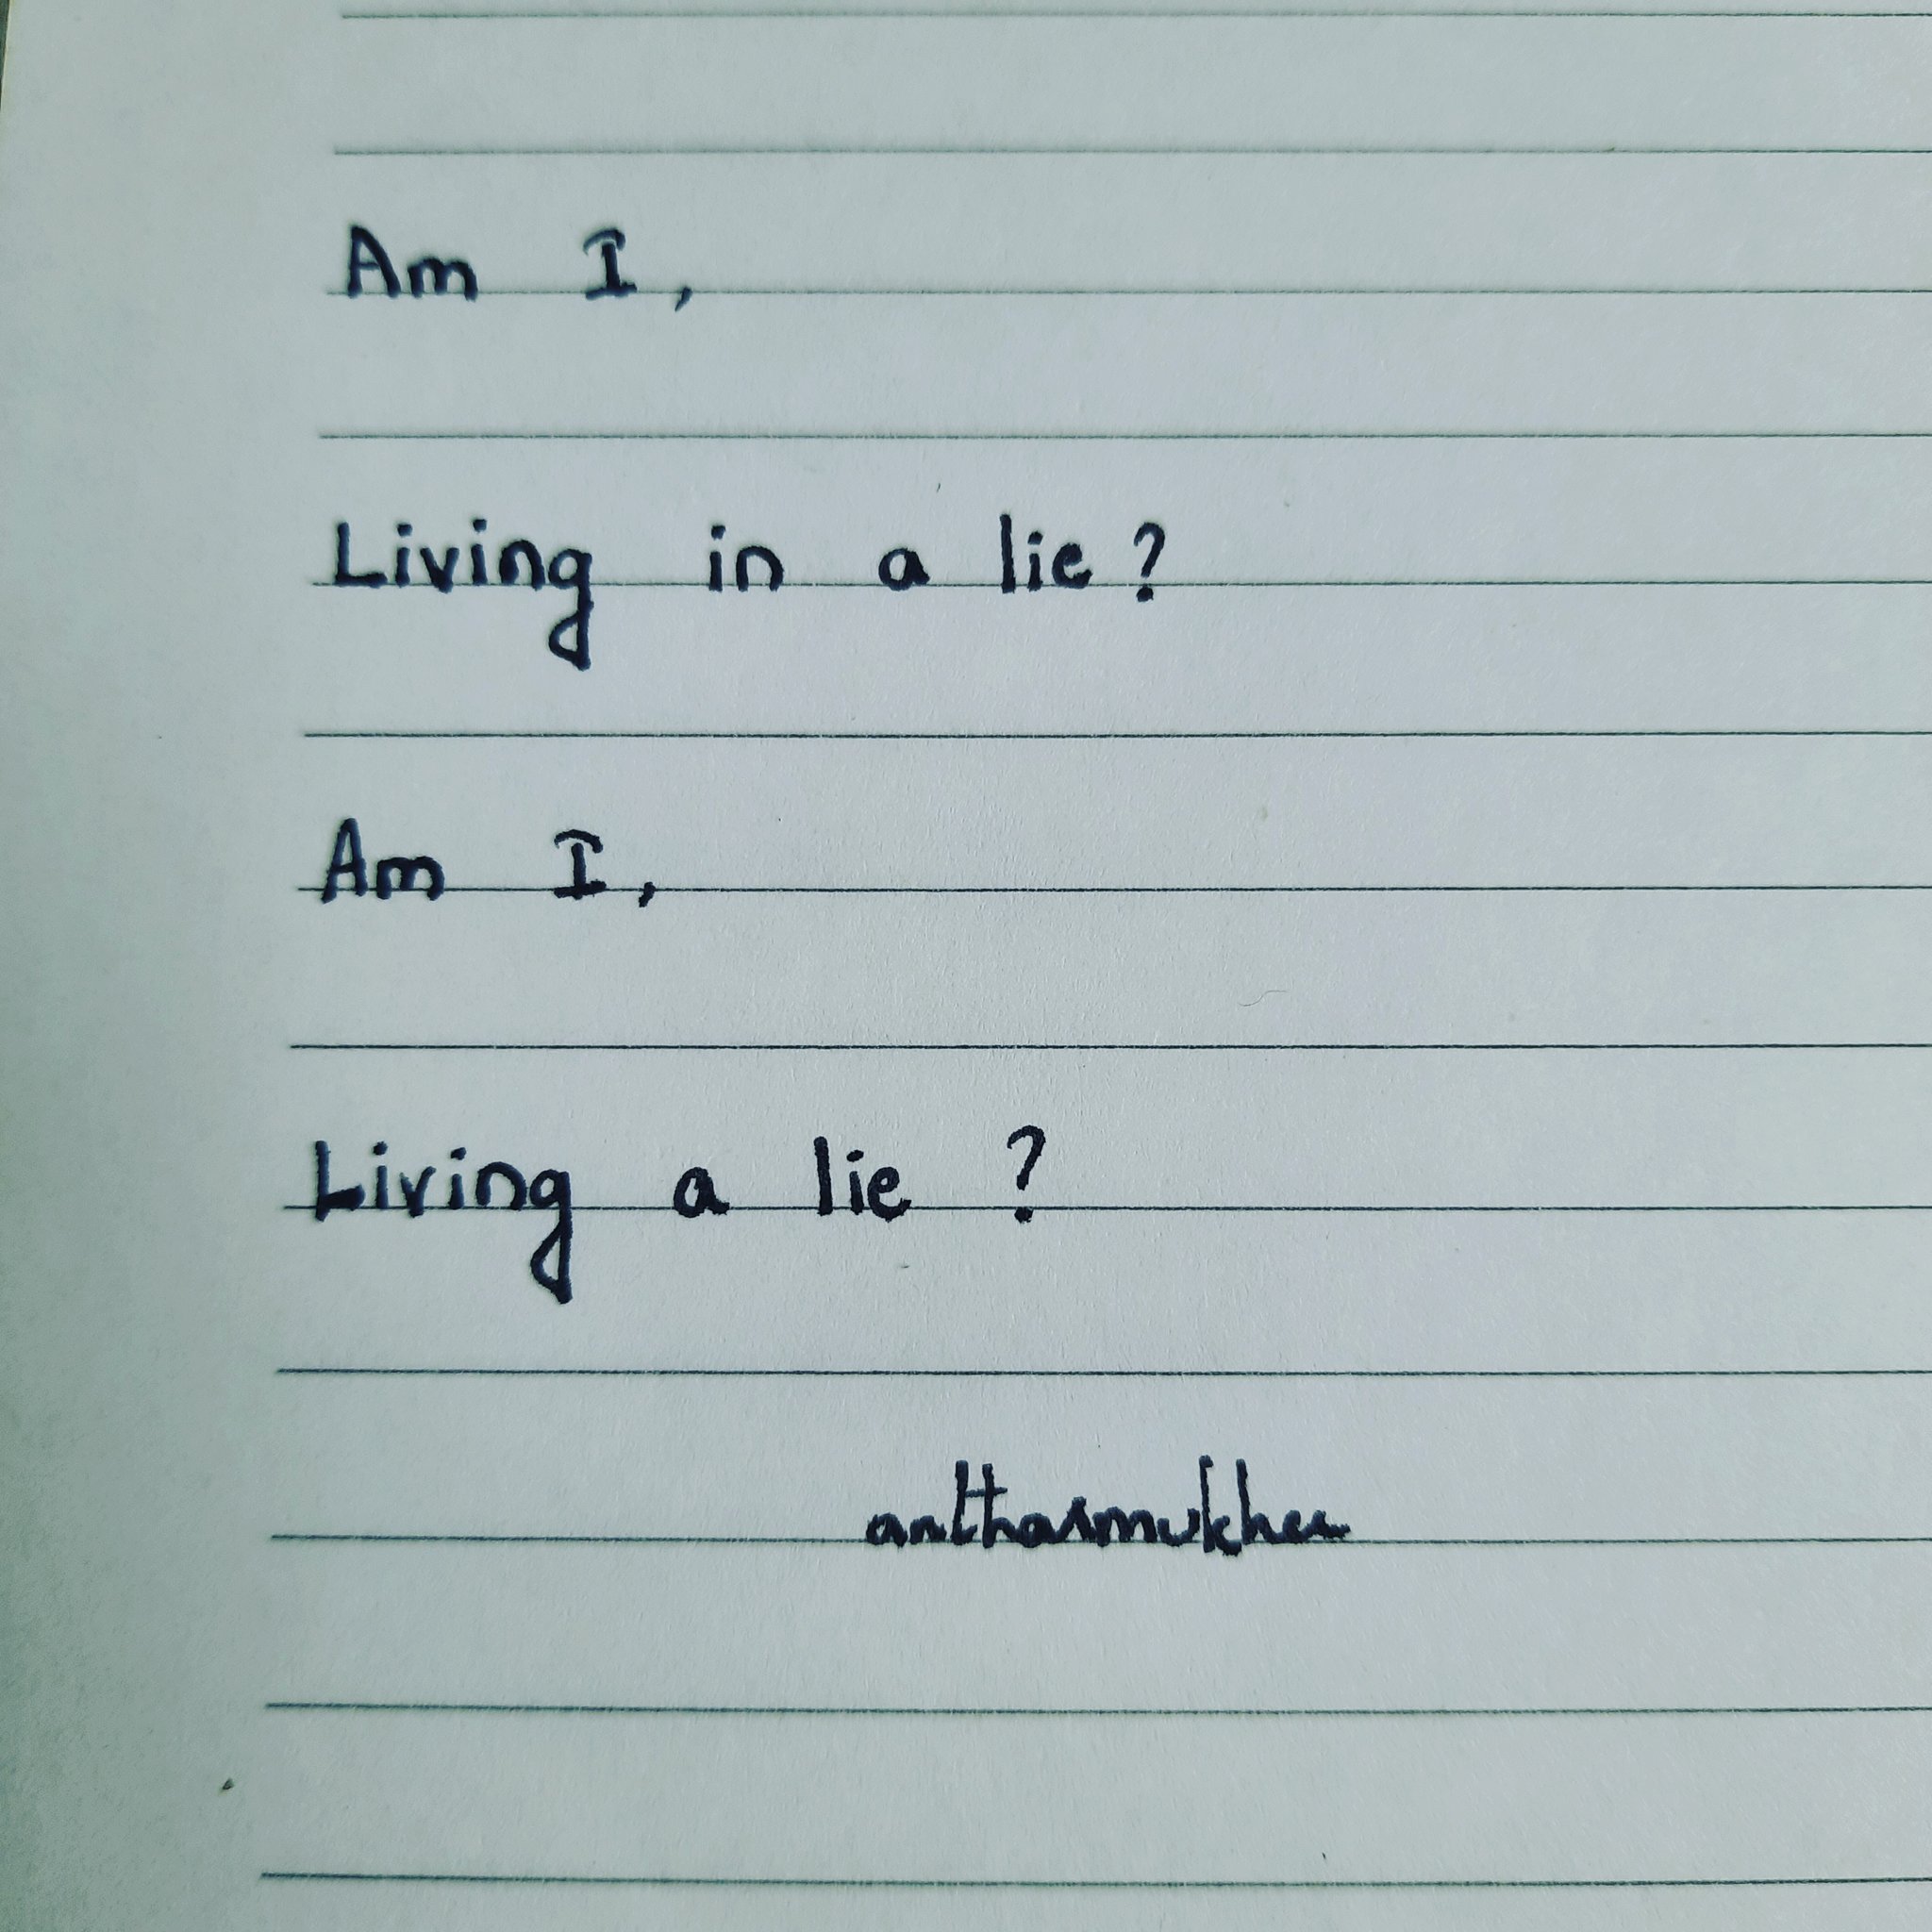 Am I,
Living in a lie?
Am I,
Living a lie ?
antharmukhee